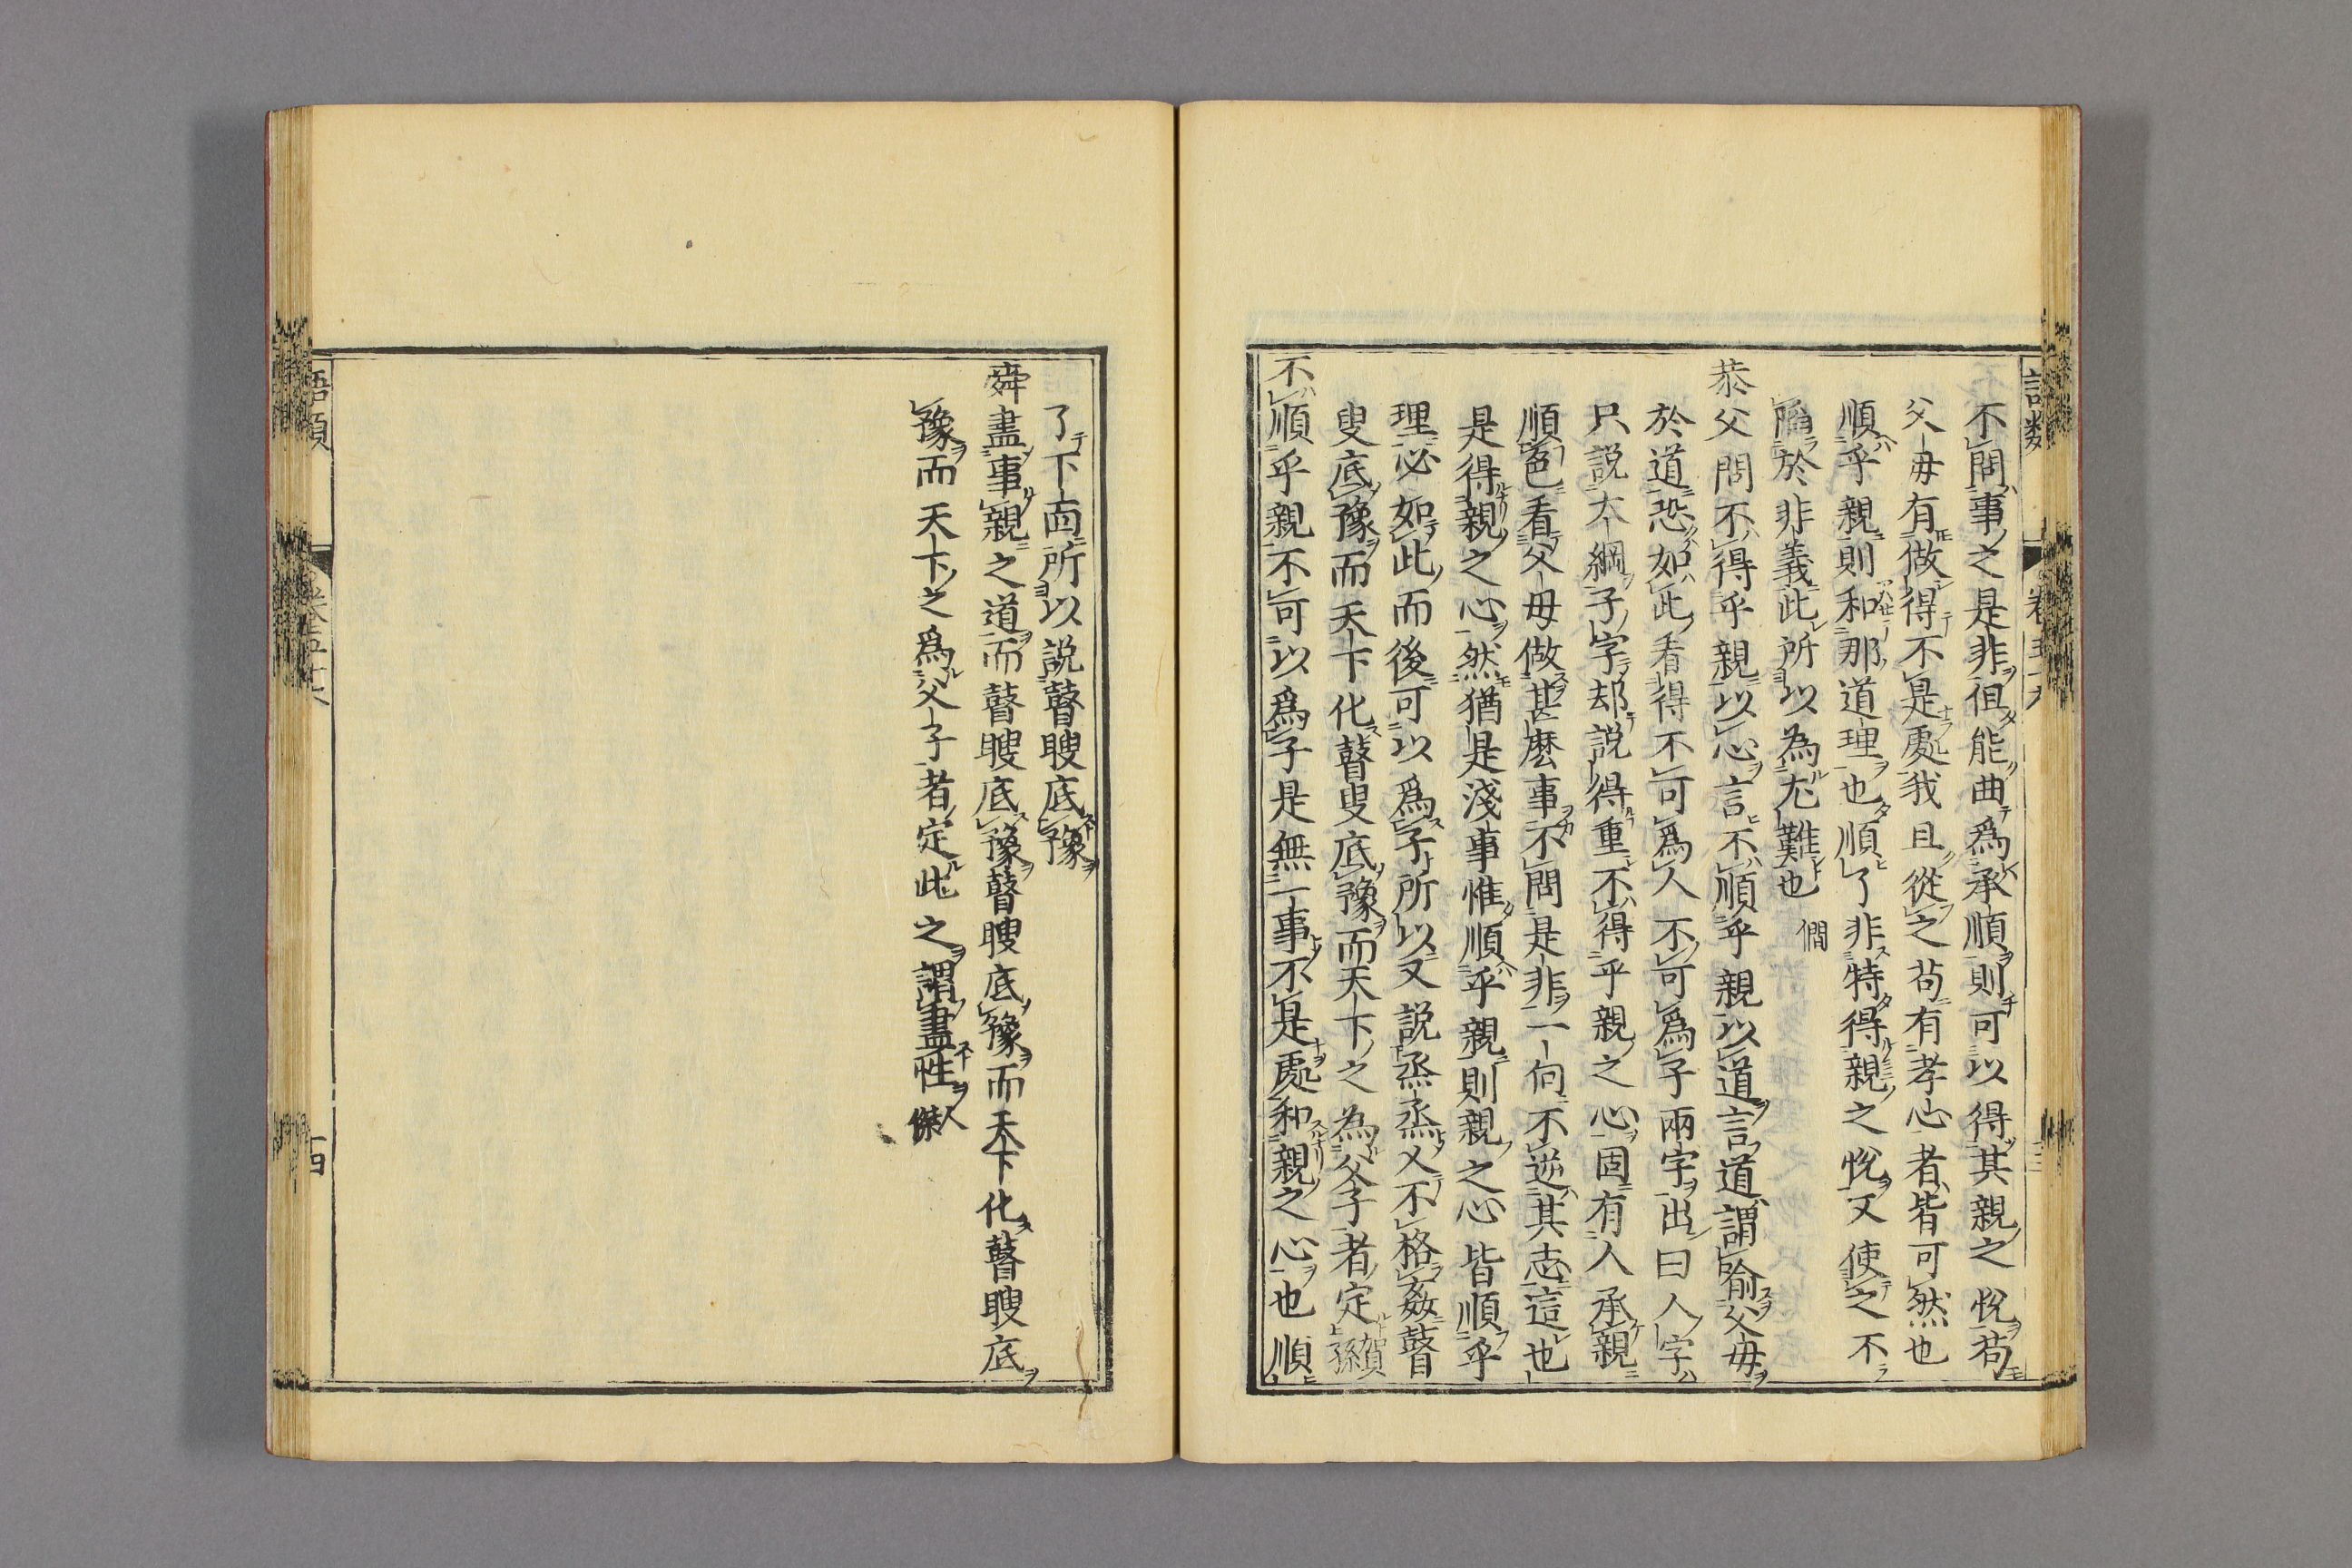 不問事之是非但能曲為承順則可以得其親之悅苟
父母有做得不是處我且從之苟有孝心者皆可然也
順乎親則和那道理也順了非特得親之悅又使之不
陥於非義此所以為尤難也 僩
恭父問不得乎親以心言不順乎親以道言道謂喻父母
於道恐如此看得不可爲人不可爲子兩字出曰人字
只說大綱子字却說得重不得乎親之心固有人承親
順色看父母做甚麽事不問是非一向不逆其志這也
是得親之心然猶是淺事惟順乎親則親之心皆順乎
理必如此而後可以爲子所以又說烝烝乂不格姦瞽
叟底豫而天下化瞽叟底豫而天下之為父子者定 賀孫
不順乎親不可以爲子是無一事不是處和親之心也順
了下面所以說瞽瞍底豫
舜盡事親之道而瞽瞍底豫瞽瞍底豫而天下化瞽瞍底
豫而天下之爲父子者定此之謂盡性 人傑
語類
十四